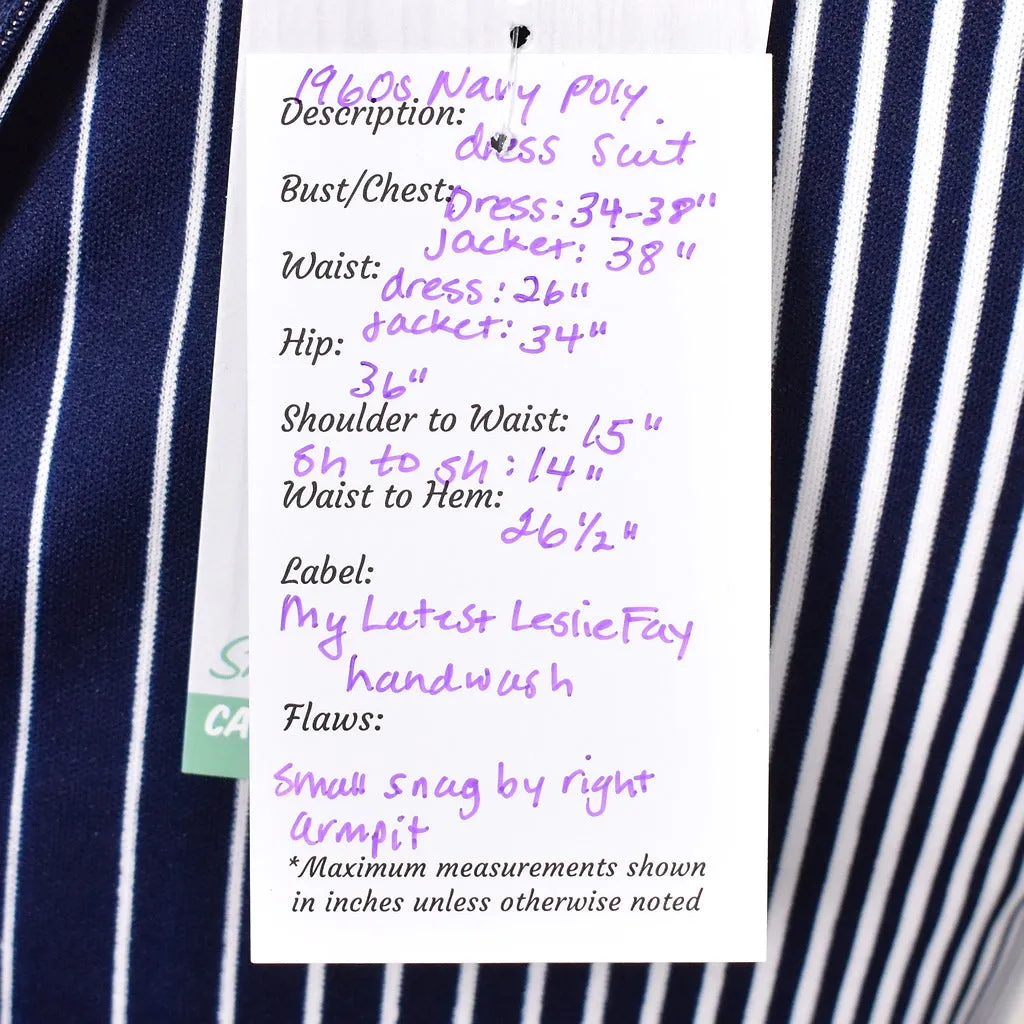 1960s Navy poly.
Description:
dress suit
Bust/Chest:
Dress: 34-38"
Jacket: 38"
Waist:
dress: 26"
Jacket: 34"
Hip:
36"
Shoulder to Waist: 15"
Sh to sh: 14"
Waist to Hem:
26 1/2"
Label:
My Latest Leslie Fay
handwash
Flaws:
Small snag by right
armpit
*Maximum measurements shown
in inches unless otherwise noted